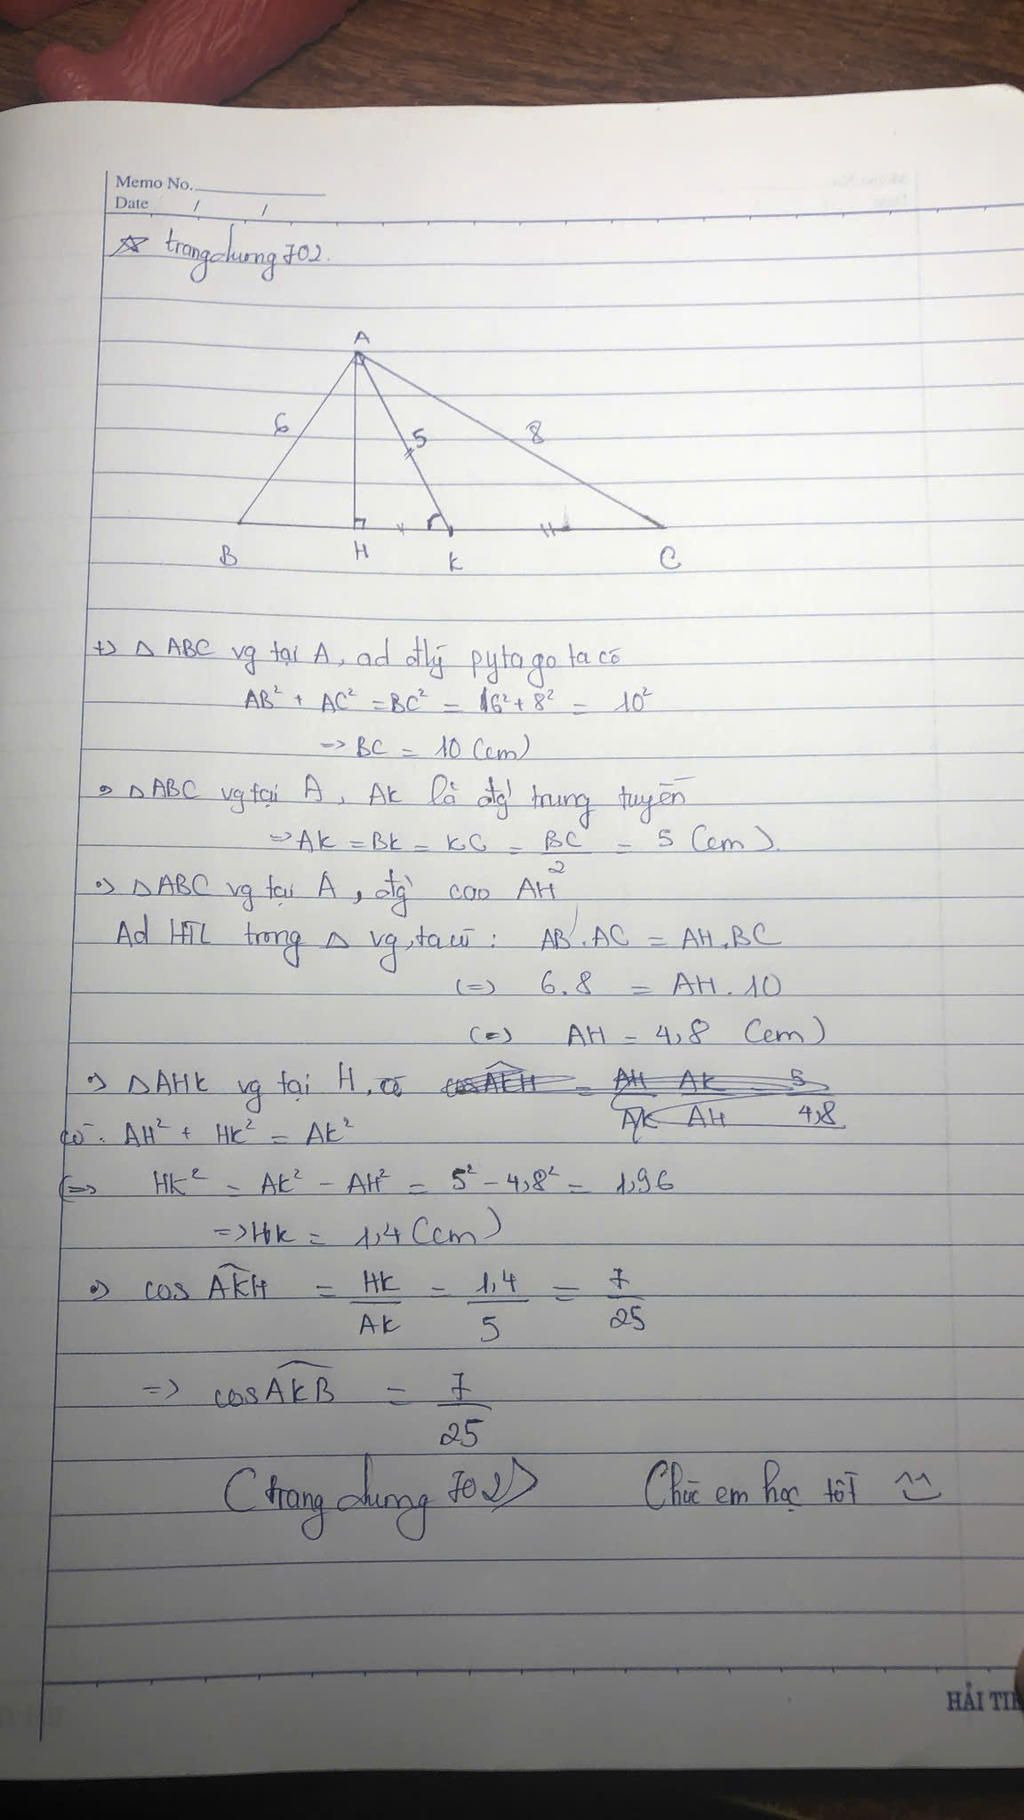 Memo No.
Date / /
☆ trangchung702.
A
6 5 8
B H K C
+) △ ABC vg tại A, ad đlý pytago ta có
AB² + AC² = BC² = 6² + 8² = 10²
=> BC = 10 (cm)
•) △ABC vg tại A, AK là đg' trung tuyến
=> AK = BK = KC = BC/2 = 5 (cm).
•) △ABC vg tại A, đg' cao AH
Ad HTL trong △ vg, ta có : AB.AC = AH.BC
(=) 6.8 = AH.10
(=) AH = 4,8 (cm)
•) △AHK vg tại H, có
có: AH² + HK² = AK²
(=> HK² = AK² - AH² = 5² - 4,8² = 1,96
=> HK = 1,4 (cm)
•) cos AKH = HK/AK = 1,4/5 = 7/25
=> cos AKB = 7/25
(trang chung 702) Chúc em học tốt ^^
HẢI TIẾ